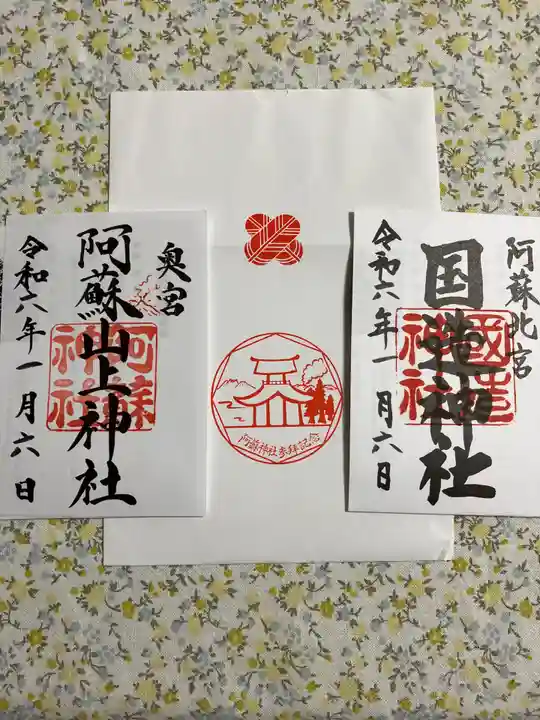 阿蘇北宮
国造神社
國造神社
令和六年一月六日
阿蘇神社参拝記念
奥宮
阿蘇山上神社
阿蘇神社
令和六年一月六日